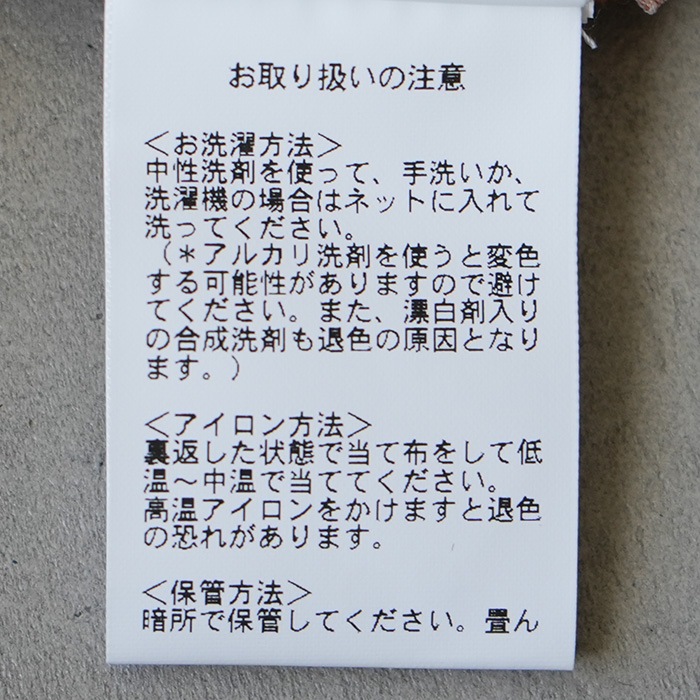 お取り扱いの注意
＜お洗濯方法＞
中性洗剤を使って、手洗いか、
洗濯機の場合はネットに入れて
洗ってください。
（＊アルカリ洗剤を使うと変色
する可能性がありますので避け
てください。また、漂白剤入り
の合成洗剤も退色の原因となり
ます。）
＜アイロン方法＞
裏返した状態で当て布をして低
温～中温で当ててください。
高温アイロンをかけますと退色
の恐れがあります。
＜保管方法＞
暗所で保管してください。畳ん